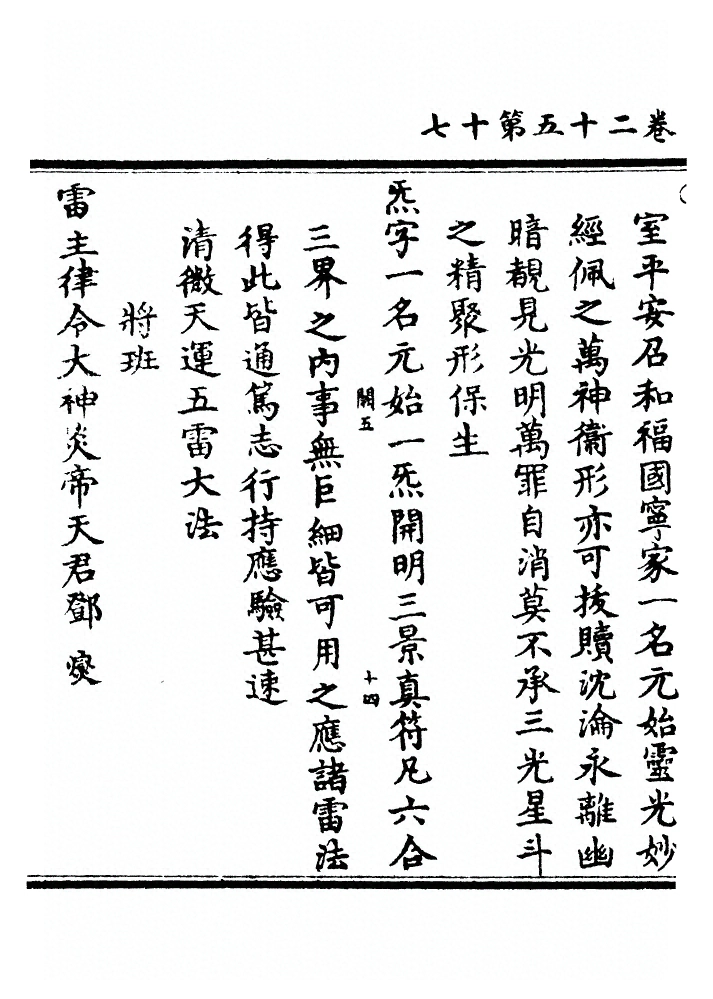 卷二十五第十七
室平安召和福國寧家一名元始靈光妙
經佩之萬神衞形亦可拔贖沈淪永離幽
暗覩見光明萬罪自消莫不承三光星斗
之精聚形保生
炁字一名元始一炁開明三景真符凡六合
開五
十四
三界之內事無巨細皆可用之應諸雷法
得此皆通篤志行持應驗甚速
清微天運五雷大法
將班
雷主律令大神炎帝天君鄧燮